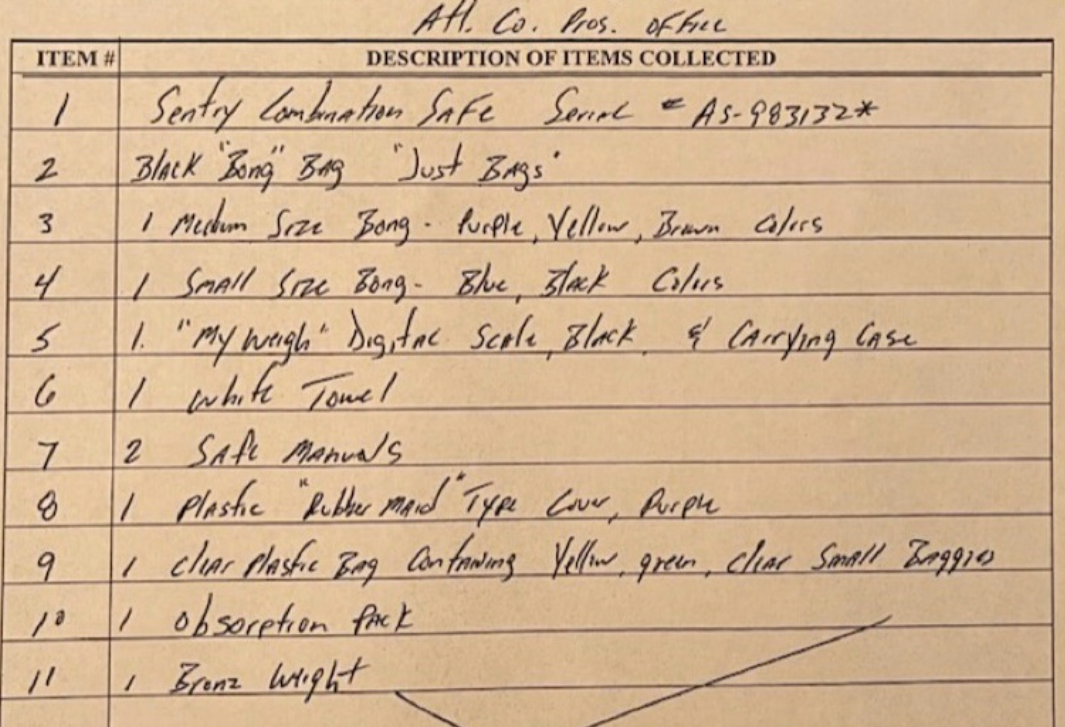 Atl. Co. Pros. Office
ITEM # DESCRIPTION OF ITEMS COLLECTED
1 Sentry Combination Safe Serial # AS-983132*
2 Black "Bong" Bag "Just Bags"
3 1 Medium Size Bong - Purple, Yellow, Brown Colors
4 1 Small Size Bong - Blue, Black Colors
5 1. "My Weigh" Digital Scale, Black & Carrying Case
6 1 White Towel
7 2 Safe Manuals
8 1 Plastic "Rubber maid" Type Cover, Purple
9 1 Clear Plastic Bag Containing Yellow, green, Clear Small Baggies
10 1 Obsorption Pack
11 1 Bronz Weight